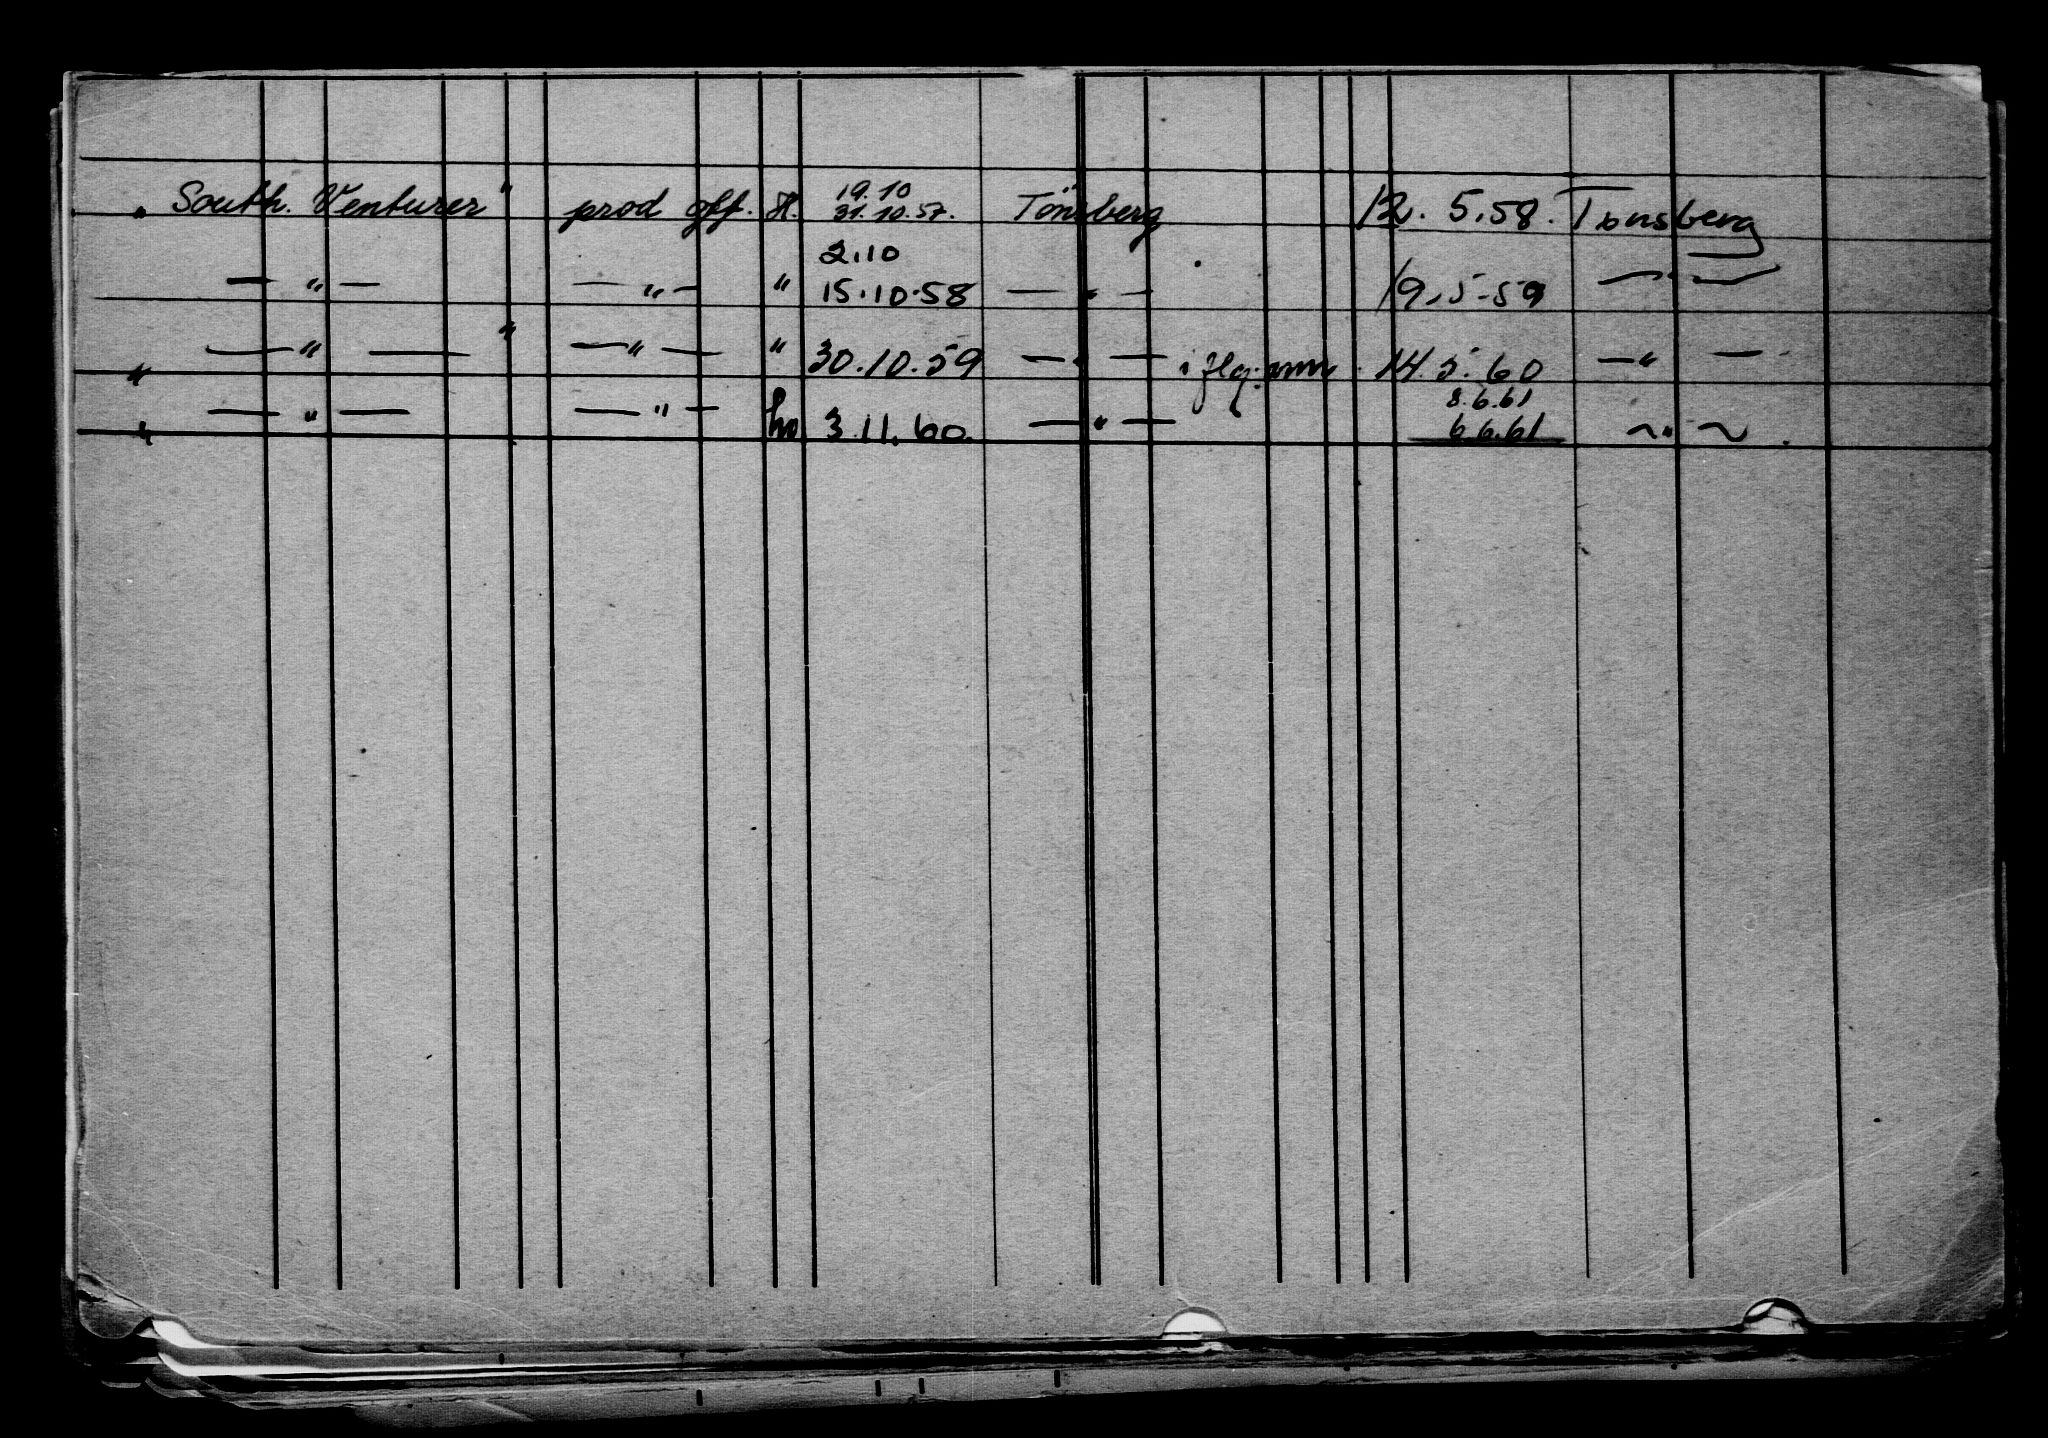 South. Venturer " prod off. H. 19.10 31.10.57. Tönsberg 12. 5.58. Tønsberg
— " — — " — " 2.10 15.10.58 — " — 19.5-59 — " —
— " — " — " — " 30.10.59 — " — i flg. mm. 14.5.60 — " —
— " — — " — ho 3.11.60. — " — 8.6.61 6.6.61 ~ " ~